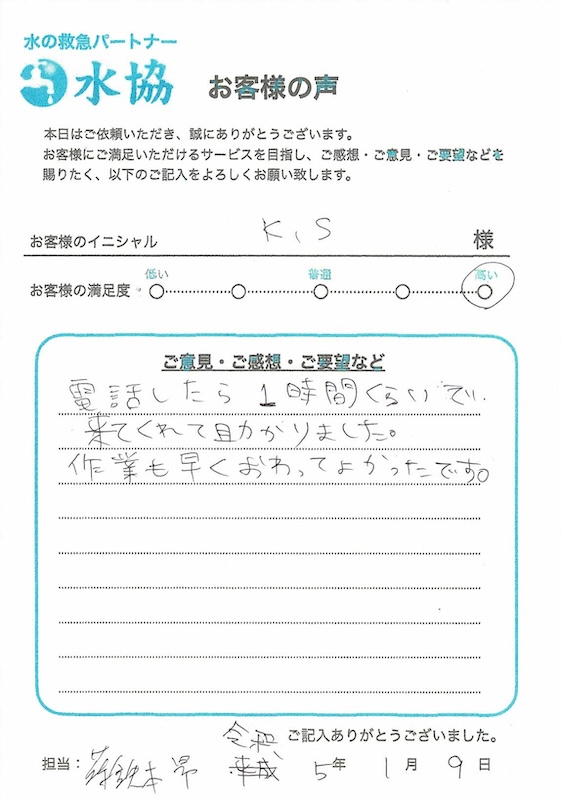 水の救急パートナー
水協 お客様の声
本日はご依頼いただき、誠にありがとうございます。
お客様にご満足いただけるサービスを目指し、ご感想・ご意見・ご要望などを
賜りたく、以下のご記入をよろしくお願い致します。
お客様のイニシャル K、S 様
低い 普通 高い
お客様の満足度
ご意見・ご感想・ご要望など
電話したら1時間くらいで
来てくれて助かりました。
作業も早くおわってよかったです。
令和 ご記入ありがとうございました。
担当: 平成 5年 1月 9日